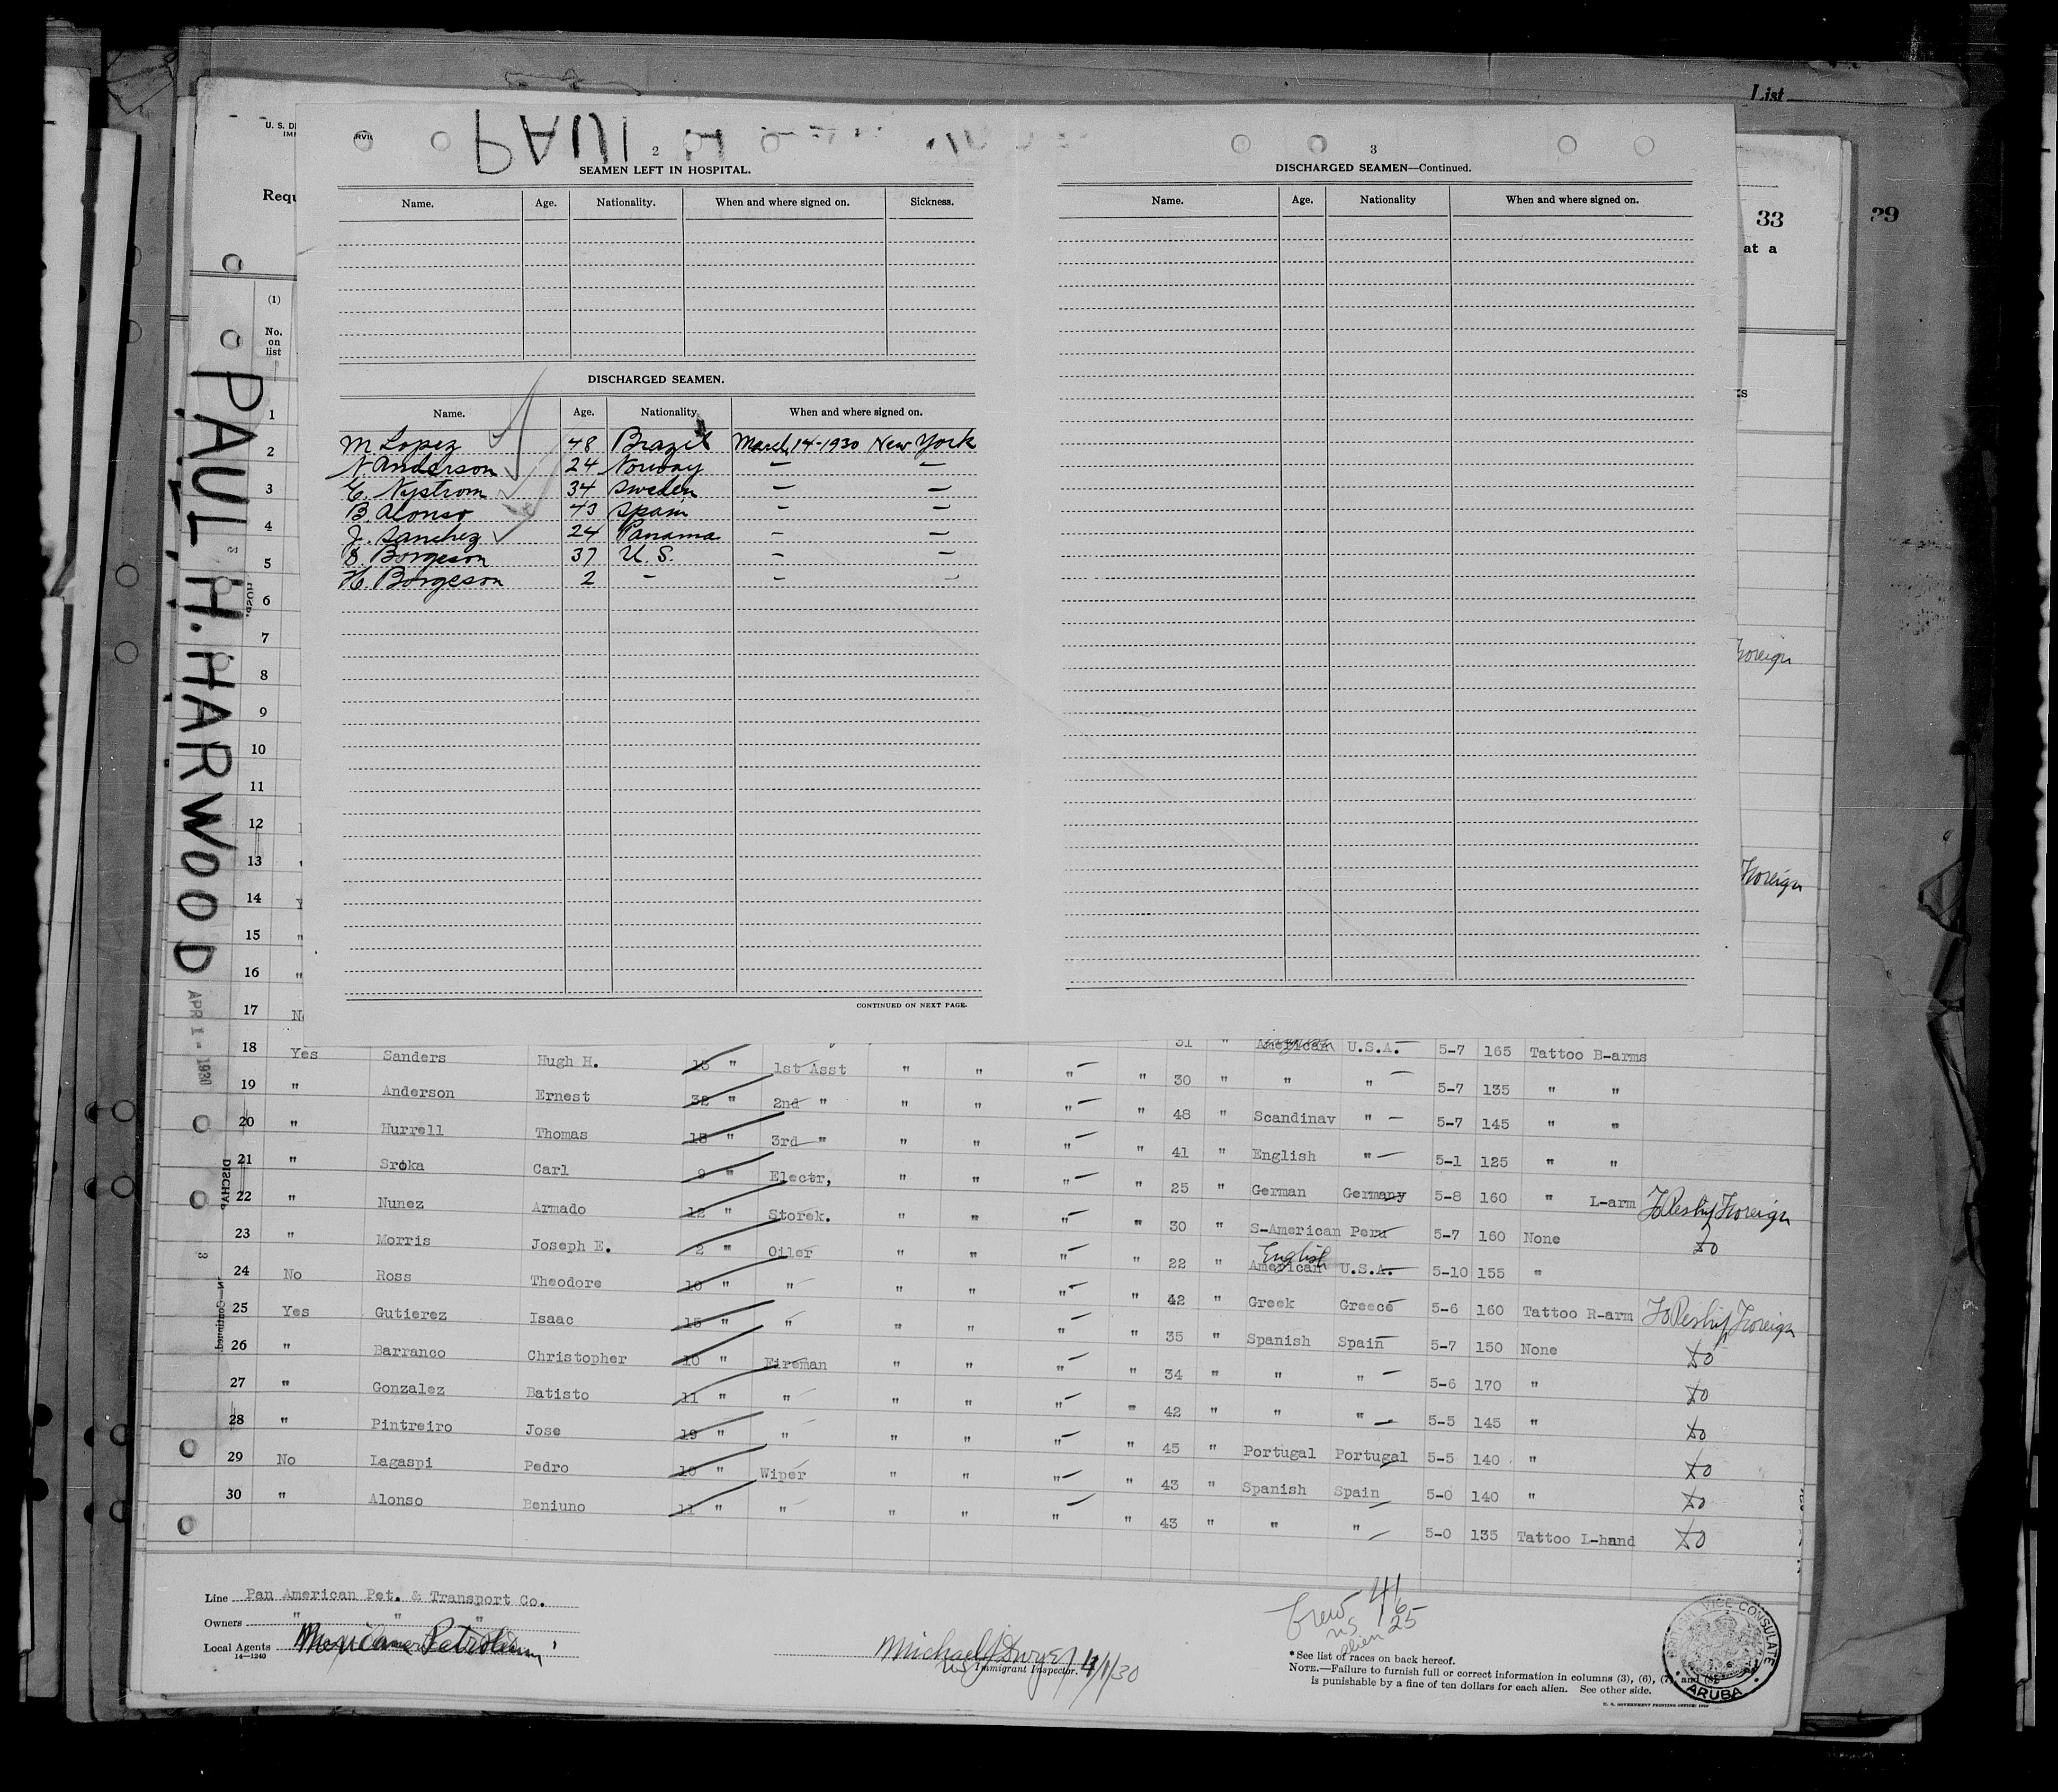 List
U. S. D
IMI
Requ
33
39
at a
(1)
No.
on
list
PAUL H. HARWOOD
APR 1 - 1930
2
SEAMEN LEFT IN HOSPITAL.
Name. Age. Nationality. When and where signed on. Sickness.
DISCHARGED SEAMEN.
Name. Age. Nationality When and where signed on.
M. Lopez 48 Brazil March 14-1930 New York
N. Anderson 24 Norway — —
E. Nystrom 34 Sweden — —
B. Alonso 43 Spain — —
J. Sanchez 24 Panama — —
S. Borgeson 37 U. S. — —
H. Borgeson 2 - - -
CONTINUED ON NEXT PAGE.
3
DISCHARGED SEAMEN—Continued.
Name. Age. Nationality When and where signed on.
Foreign
Foreign
1
2
3
4
5
6
7
8
9
10
11
12
13
14
15
16
17 N
31 " American U.S.A. 5-7 165 Tattoo B-arms
18 Yes Sanders Hugh H. 13 " 1st Asst " " " " 30 " " " 5-7 135 " "
19 " Anderson Ernest 32 " 2nd " " " " " 48 " Scandinav " 5-7 145 " "
20 " Hurrell Thomas 18 " 3rd " " " " " 41 " English " 5-1 125 " "
21 " Sroka Carl 9 " Electr, " " " " 25 " German Germany 5-8 160 " L-arm To Reship Foreign
22 " Nunez Armado 12 " Storek. " " " " 30 " S-American Peru 5-7 160 None do
23 " Morris Joseph E. 2 " Oiler " " " " 22 " English American U.S.A. 5-10 155 "
24 No Ross Theodore 10 " " " " " " 42 " Greek Greece 5-6 160 Tattoo R-arm To Reship Foreign
25 Yes Gutierez Isaac 15 " " " " " " 35 " Spanish Spain 5-7 150 None do
26 " Barranco Christopher 10 " Fireman " " " " 34 " " " 5-6 170 " do
27 " Gonzalez Batisto 11 " " " " " " 42 " " " 5-5 145 " do
28 " Pintreiro Jose 19 " " " " " " 45 " Portugal Portugal 5-5 140 " do
29 No Lagaspi Pedro 10 " Wiper " " " " 43 " Spanish Spain 5-0 140 " do
30 " Alonso Beniuno 11 " " " " " " 43 " " " 5-0 135 Tattoo L-hand do
Line Pan American Pet. & Transport Co.
Owners " " "
Local Agents Mexican Petroleum
14—1240
Michael J Dwyer 4/1/30
Immigrant Inspector.
Crew 41
US 16
Alien 25
* See list of races on back hereof.
NOTE.—Failure to furnish full or correct information in columns (3), (6), (7) and (8)
is punishable by a fine of ten dollars for each alien. See other side.
U. S. GOVERNMENT PRINTING OFFICE
BRITISH VICE CONSULATE
ARUBA